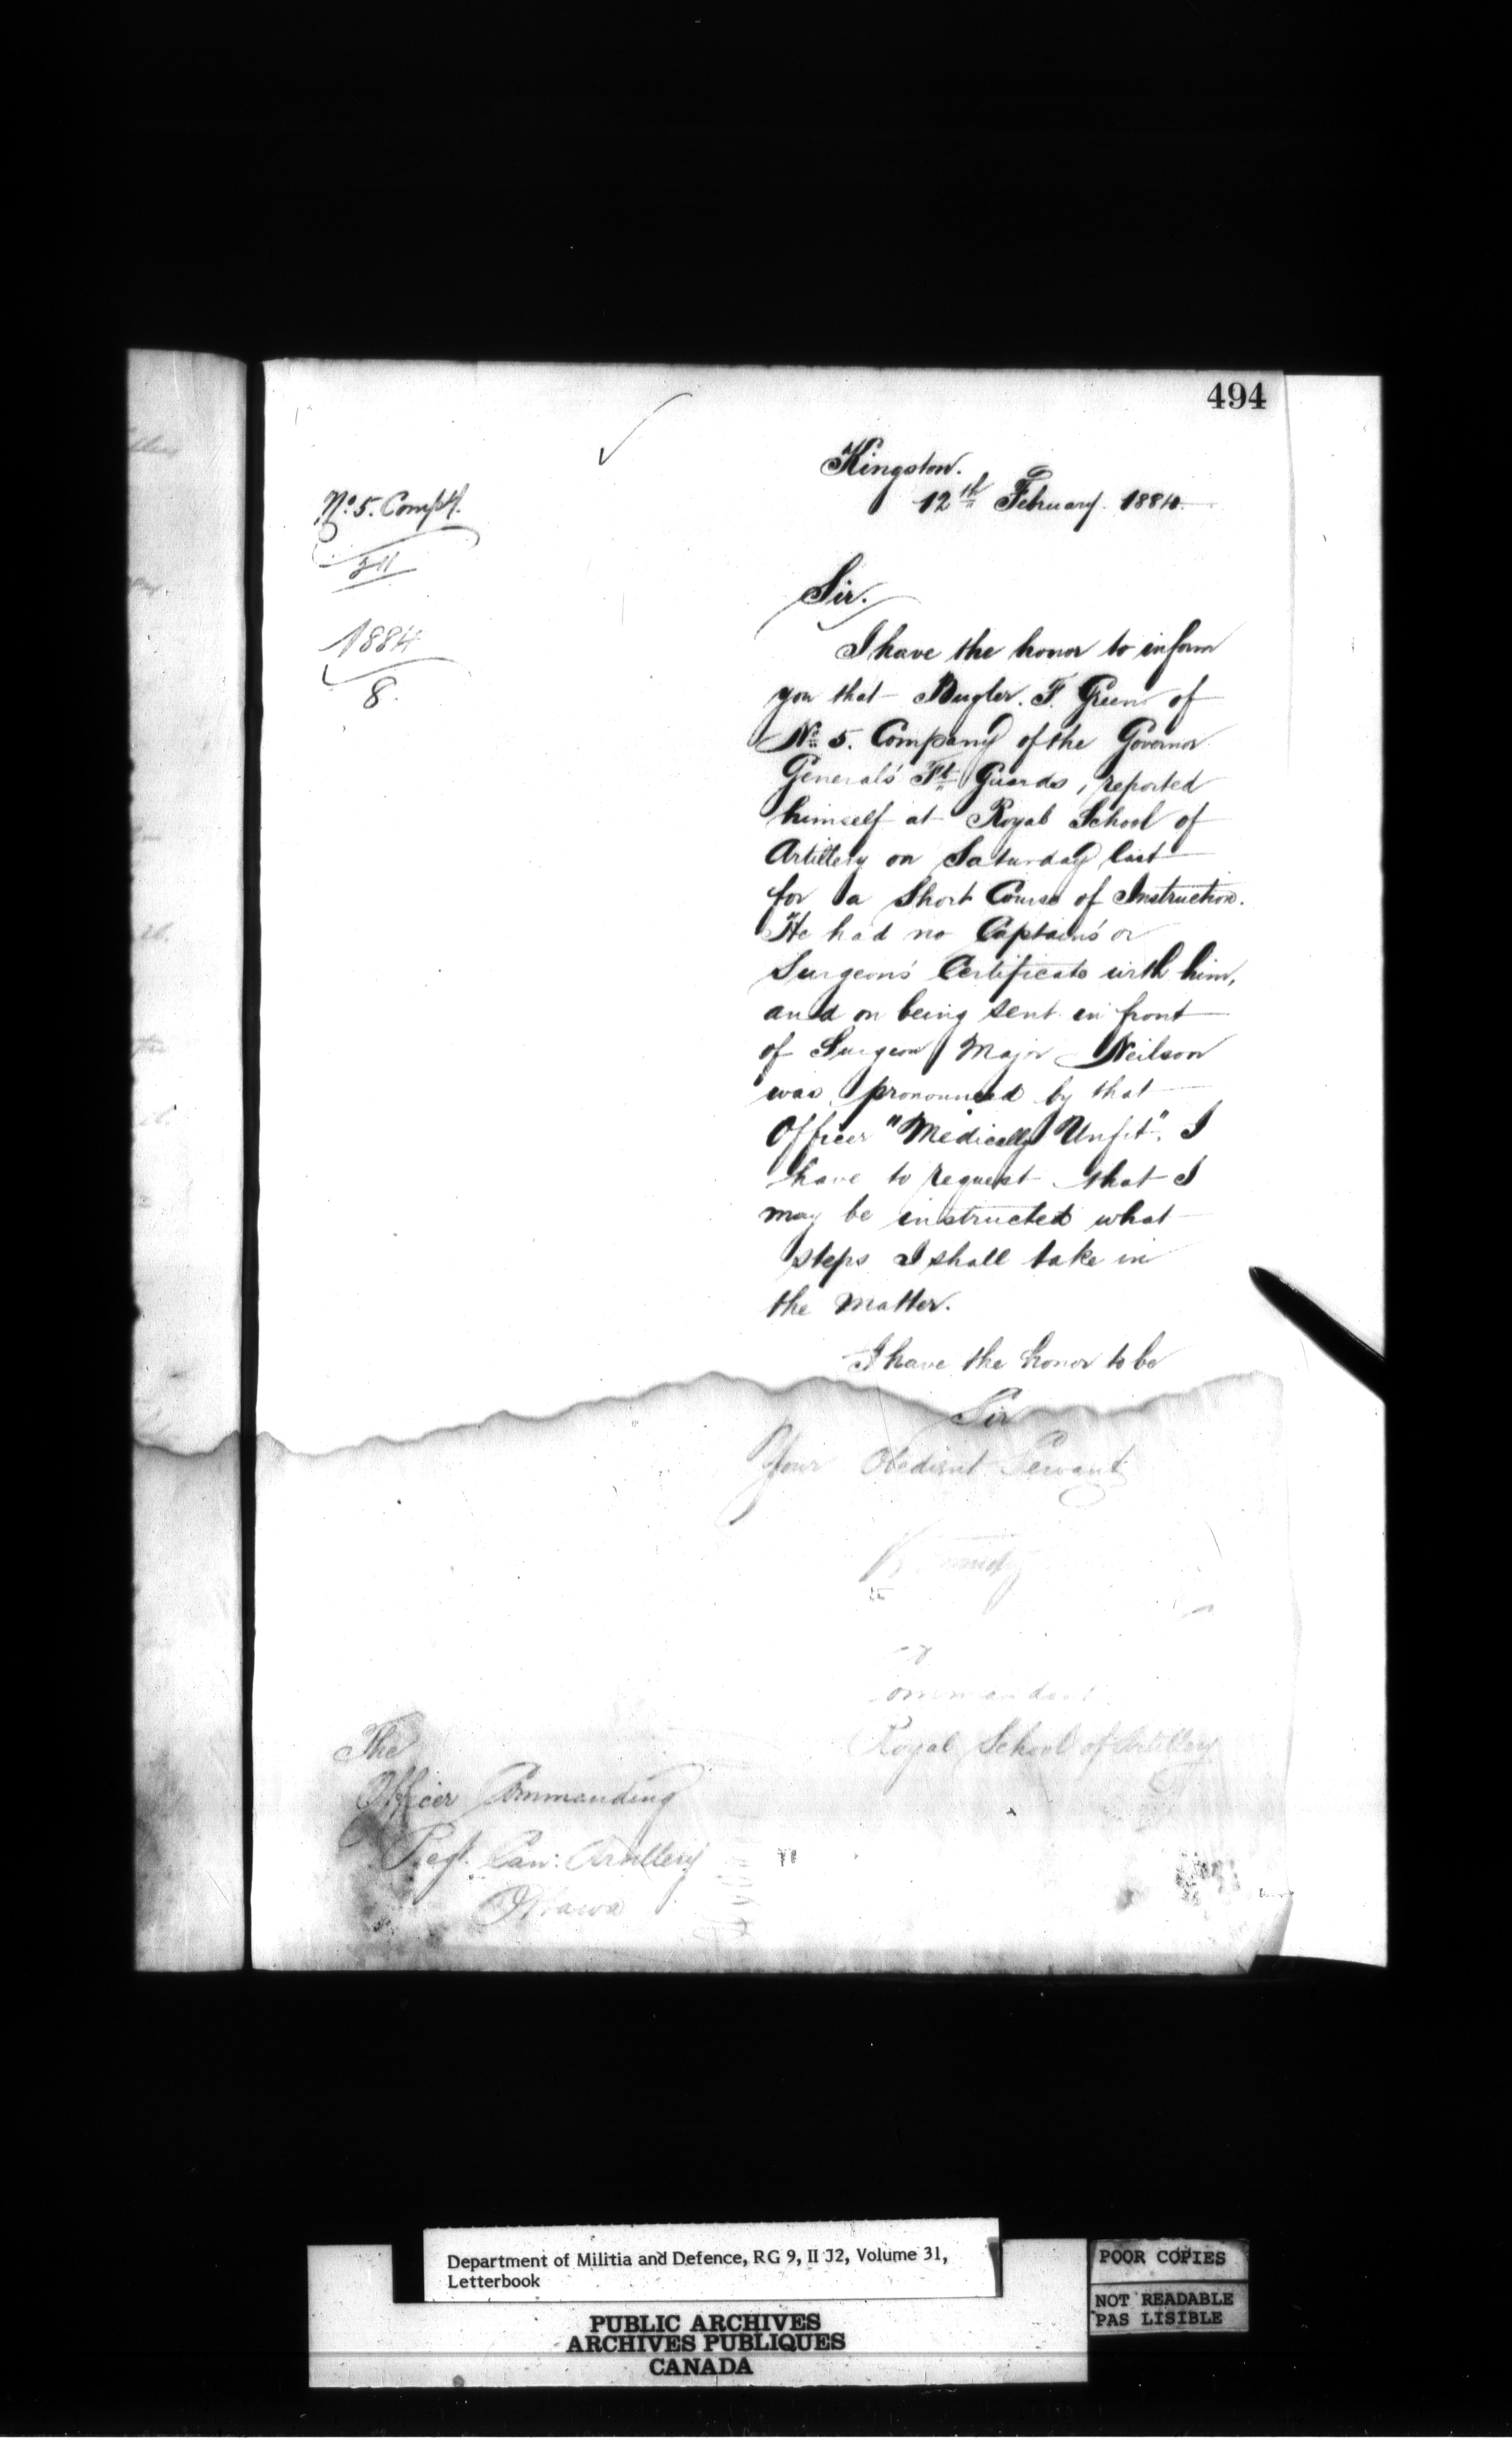 494
Kingston.
12th February. 1884.
No. 5. Compt.
1884
8.
Sir.
I have the honor to inform
you that Bugler. F. Green of
No. 5. Company of the Governor
General's Ft. Guards, reported
himself at Royal School of
Artillery on Saturday last
for a Short Course of Instruction.
He had no Captains' or
Surgeons' Certificate with him,
and on being sent in front
of Surgeon Major Neilson
was pronounced by that
Officer "Medically Unfit". I
have to request that I
may be instructed what
steps I shall take in
the matter.
I have the honor to be
Sir
Your Obedient Servant
ommandant
Royal School of Artillery
The
Officer Commanding
Regt. Can: Artillery
Ottawa
Department of Militia and Defence, RG 9, II J2, Volume 31,
Letterbook
PUBLIC ARCHIVES
ARCHIVES PUBLIQUES
CANADA
POOR COPIES
NOT READABLE
PAS LISIBLE